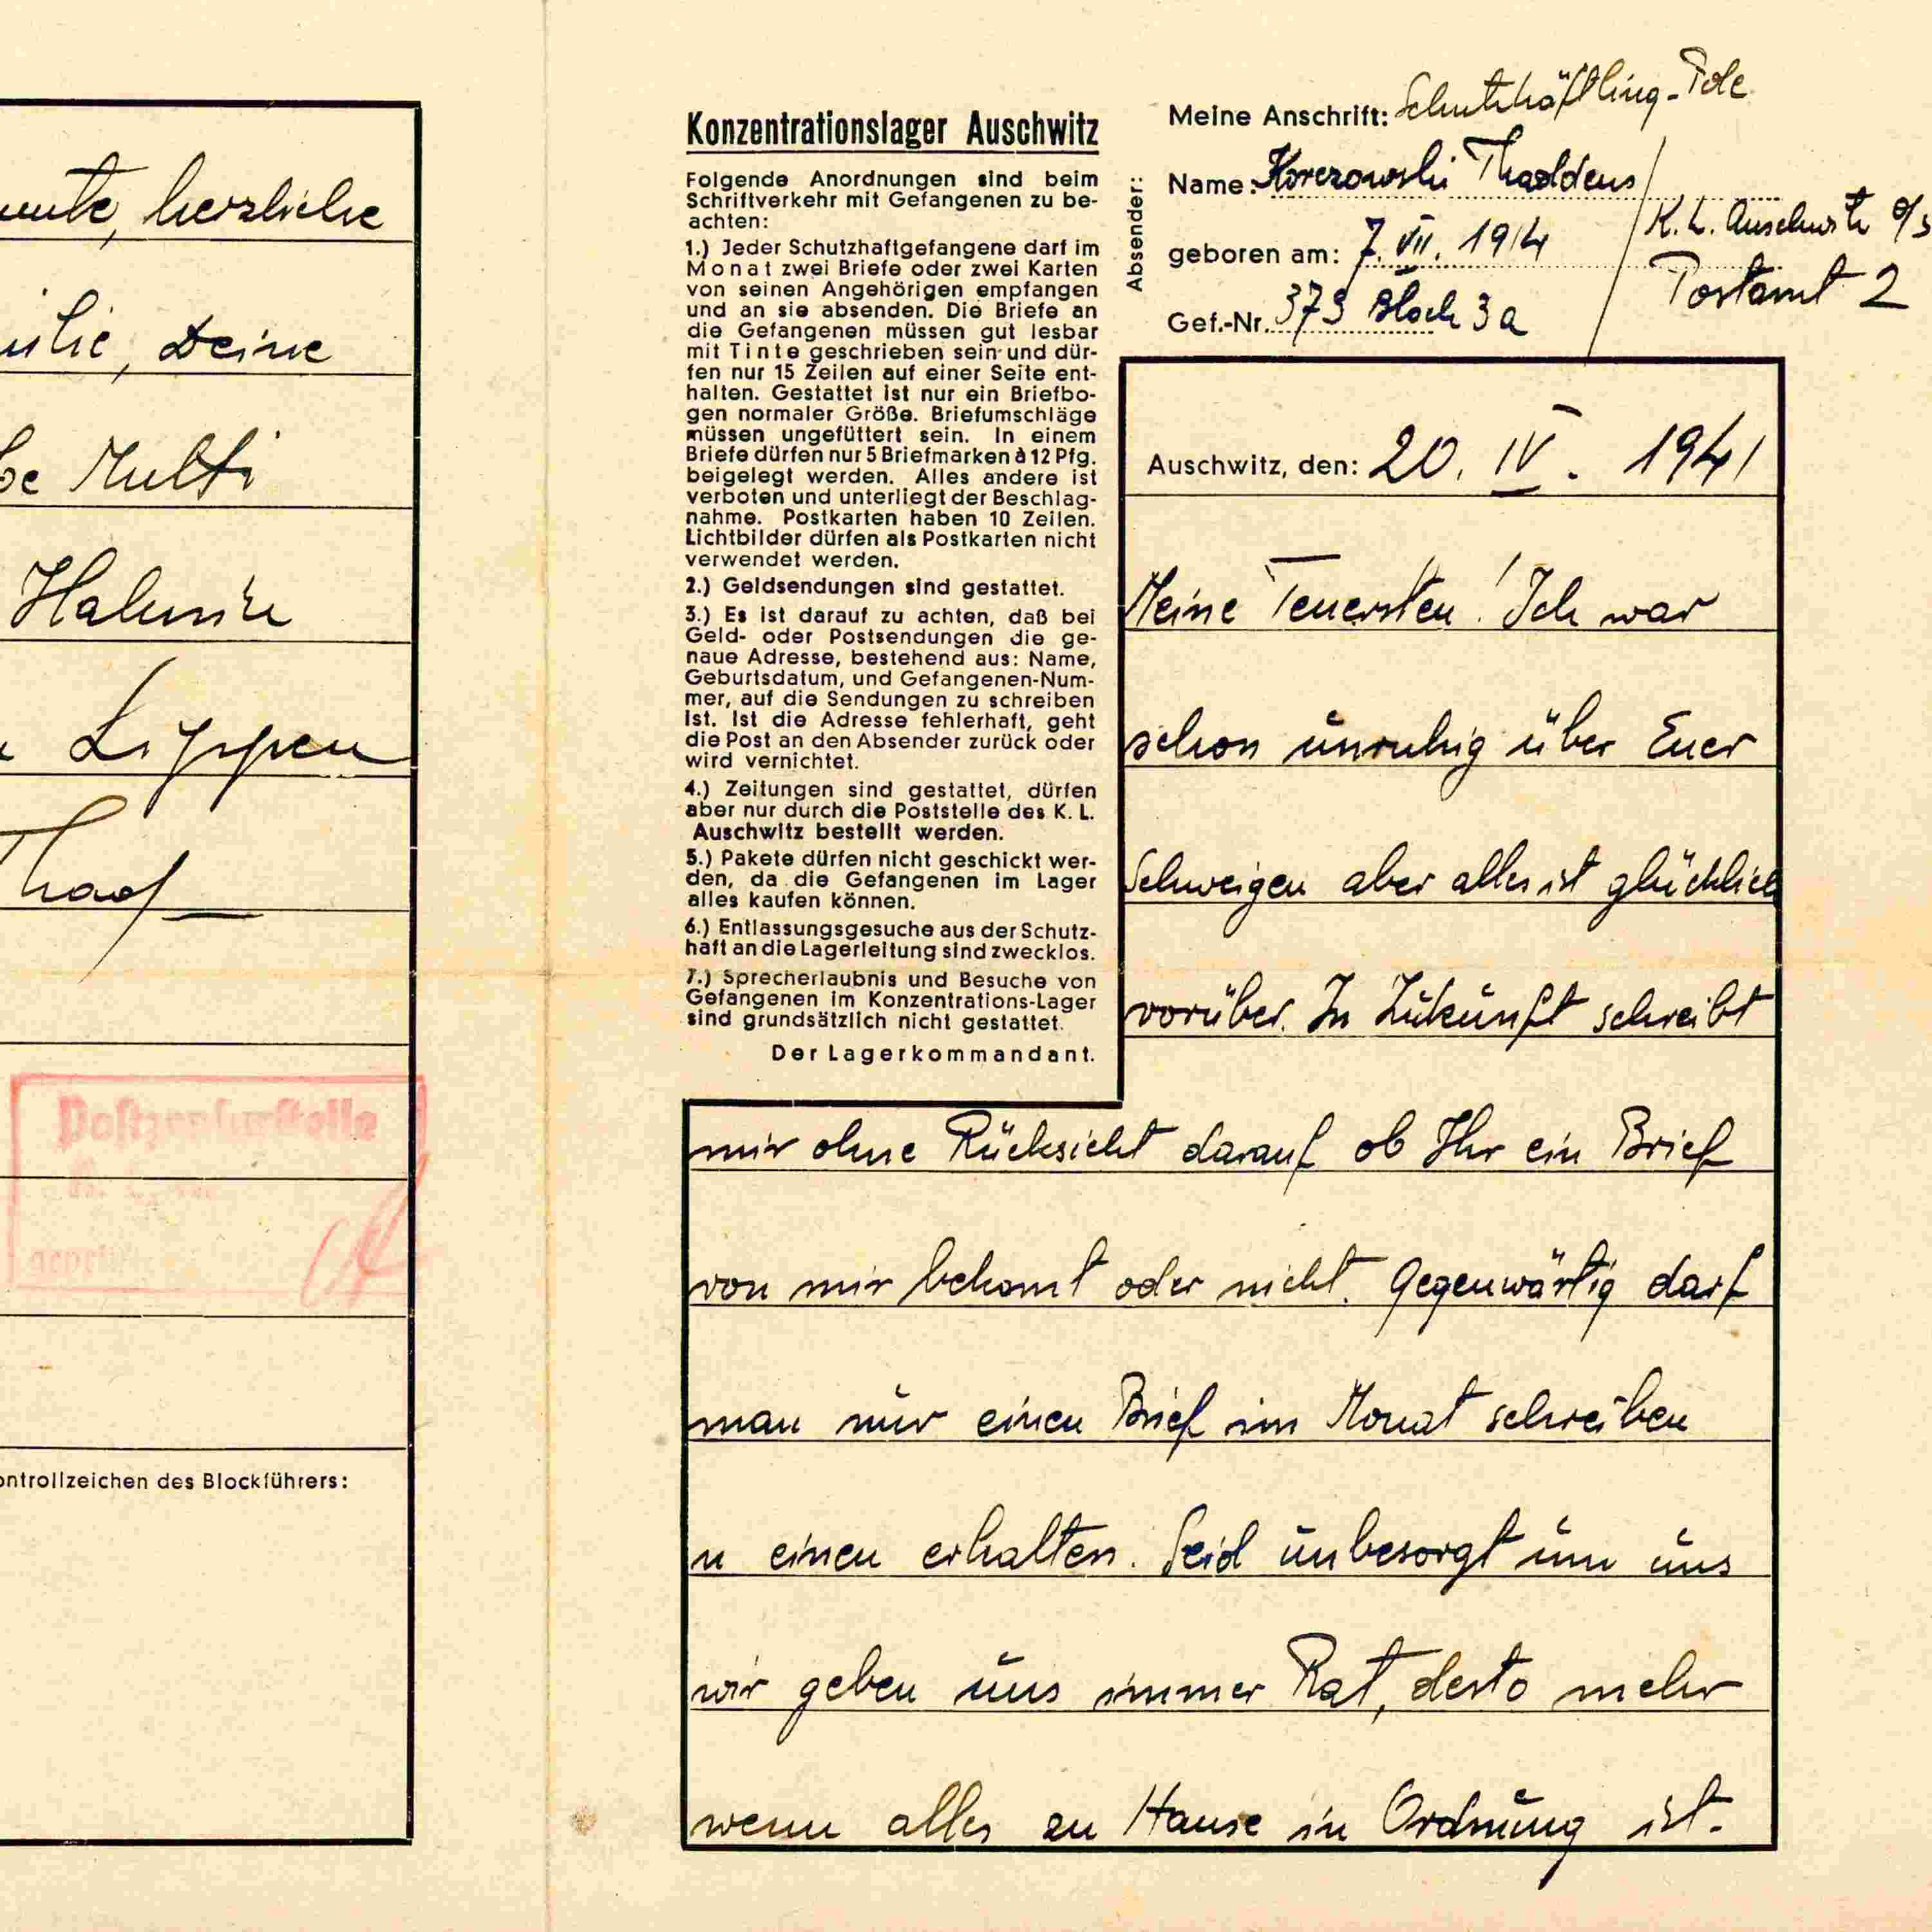 herzliche
Deine
Multi
Halusia
Lippen
Thad
Postzensurstelle
K. L.
geprüft
Kontrollzeichen des Blockführers:
Konzentrationslager Auschwitz
Folgende Anordnungen sind beim
Schriftverkehr mit Gefangenen zu be-
achten:
1.) Jeder Schutzhaftgefangene darf im
Monat zwei Briefe oder zwei Karten
von seinen Angehörigen empfangen
und an sie absenden. Die Briefe an
die Gefangenen müssen gut lesbar
mit Tinte geschrieben sein und dür-
fen nur 15 Zeilen auf einer Seite ent-
halten. Gestattet ist nur ein Briefbo-
gen normaler Größe. Briefumschläge
müssen ungefüttert sein. In einem
Briefe dürfen nur 5 Briefmarken à 12 Pfg.
beigelegt werden. Alles andere ist
verboten und unterliegt der Beschlag-
nahme. Postkarten haben 10 Zeilen.
Lichtbilder dürfen als Postkarten nicht
verwendet werden.
2.) Geldsendungen sind gestattet.
3.) Es ist darauf zu achten, daß bei
Geld- oder Postsendungen die ge-
naue Adresse, bestehend aus: Name,
Geburtsdatum, und Gefangenen-Num-
mer, auf die Sendungen zu schreiben
ist. Ist die Adresse fehlerhaft, geht
die Post an den Absender zurück oder
wird vernichtet.
4.) Zeitungen sind gestattet, dürfen
aber nur durch die Poststelle des K. L.
Auschwitz bestellt werden.
5.) Pakete dürfen nicht geschickt wer-
den, da die Gefangenen im Lager
alles kaufen können.
6.) Entlassungsgesuche aus der Schutz-
haft an die Lagerleitung sind zwecklos.
7.) Sprecherlaubnis und Besuche von
Gefangenen im Konzentrations-Lager
sind grundsätzlich nicht gestattet.
Der Lagerkommandant.
Absender:
Meine Anschrift: Schutzhäftling-Pole
Name: Korczowski Thaddeus
geboren am: 7. VII. 1914
Gef.-Nr. 373 Block 3a
K. L. Auschwitz O/S
Postamt 2
Auschwitz, den: 20. IV. 1941
Meine Teuersten! Ich war
schon unruhig über Euer
Schweigen aber alles ist glücklich
vorüber. In Zukunft schreibt
mir ohne Rücksicht darauf ob Ihr ein Brief
von mir bekomt oder nicht. Gegenwärtig darf
man nur einen Brief im Monat schreiben
u einen erhalten. Seid unbesorgt um uns
wir geben uns immer Rat, desto mehr
wenn alles zu Hause in Ordnung ist.